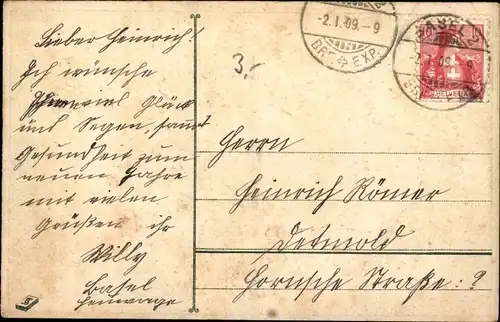 Lieber Heinrich!
Ich wünsche
viel Glück
und Segen, sammt
Gesundheit zum
neuen Jahre
mit vielen
Grüßen ihr
Willy
Basel
3,-
-2.I.09.-9
BR. EXP.
BASEL
HELVETIA
Herrn
Heinrich Römer
Detmold
Hornsche Straße: ?